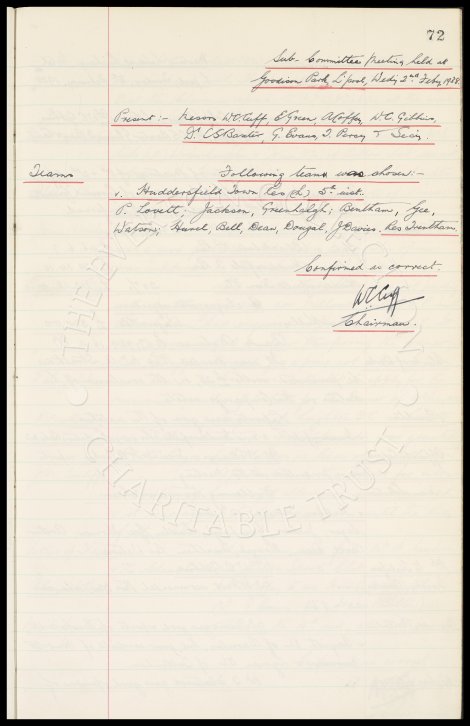 72
Sub-Committee Meeting held at
Goodison Park, L'pool, Wedy 2nd Feby 1938.
Present :- Messrs W.C. Cuff, E. Green, A. Coffey, W.C. Gibbins,
Dr C.S. Baxter, G. Evans, T. Percy & Secy.
Teams
Following team was chosen :-
v. Huddersfield Town Res (h) 5th inst.
P. Lovett; Jackson, Greenhalgh; Bentham, Gee,
Watson; Hurel, Bell, Dean, Dougal, J. Davies. Res Trentham.
Confirmed as correct.
W.C. Cuff
Chairman.
THE EVERTON COLLECTION
CHARITABLE TRUST